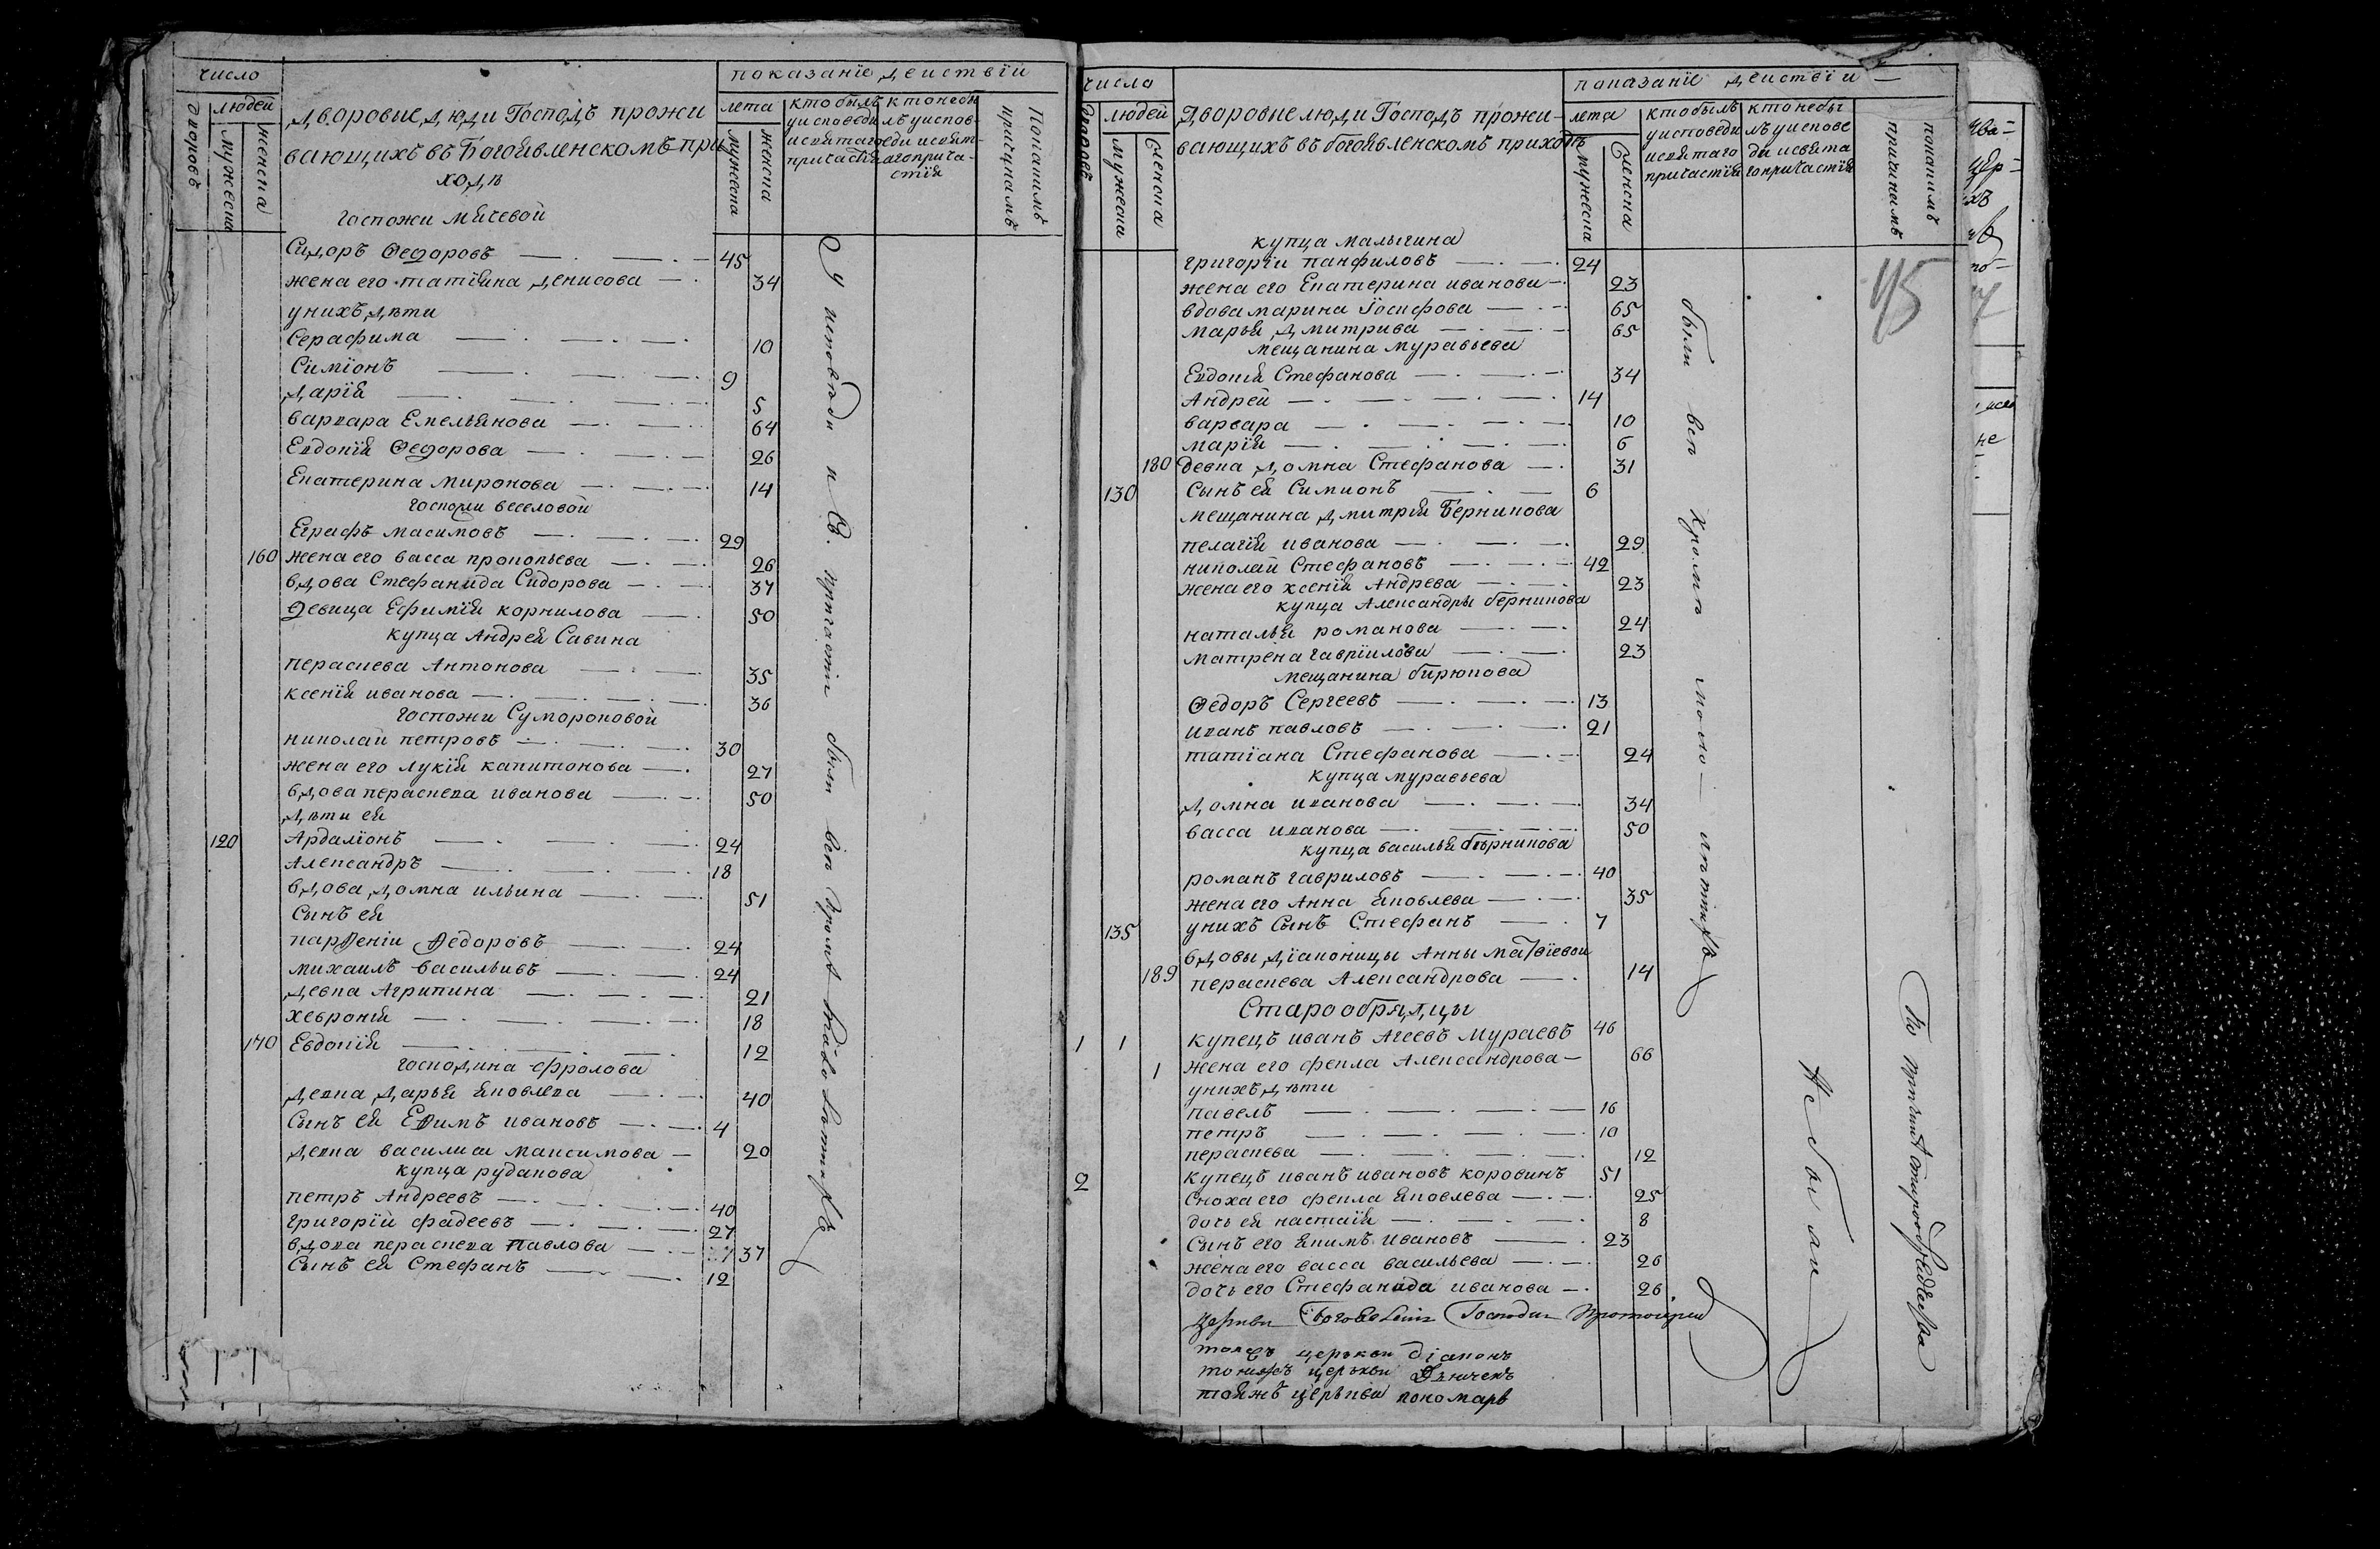 число
показанїе деиствїи
дворовъ
людей
мужеска
женска
дворовые люди Господъ прожи
вающихъ въ Богоявленскомъ при
ходѣ
лета
мужеска
женска
кто былъ
у исповеди
и святаго
причастія
кто небы
лъ у испов-
еди и свят-
аго прича-
стія
Покакимъ
причинамъ
госпожи Мячевой
Сидоръ Ѳедоровъ 45
жена его татіяна денисова 34
у нихъ дѣти
Серафима 10
Симїонъ 9
дарія 5
варвара Емельянова 64
Евдокїя Ѳедорова 26
Екатерина миронова 14
госпожи веселовой
Еграфъ масимовъ 29
160 жена его васса прокопьева 26
вдова Стефанида Сидорова 37
девица Ефимїя корнилова 50
купца Андрея Савина
парасиева Антонова 35
ксенїя иванова 36
госпожи Сумороковой
николаи петровъ 30
жена его лукїя капитонова 27
вдова параскева иванова 50
дѣти ея
120 Ардалїонъ 24
Александръ 18
вдова домна ильина 51
Сынъ ея
парѳенїи Ѳедоровъ 24
михаилъ васильивъ 24
девка Агрипина 21
хевронїя 18
170 Евдокїя 12
господина фролова
девка дарья яковлева 40
Сынъ ея Еѳимъ ивановъ 4
девка василиса максимова 20
купца рудакова
петръ Андреевъ 40
григорїй фадеевъ 27
вдова параскева павлова 37
Сынъ ея Стефанъ 12
У исповѣди и Св. причастїи были всѣ кромѣ малолѣтнхъ
число
показанїе деиствїи
дворовъ
людей
мужеска
женска
дворовые люди Господъ прожи-
вающихъ въ богоявленскомъ приходѣ
лета
мужеска
женска
кто былъ
у исповеди
и святаго
причастїя
кто небы
лъ у испове
ди и свята
го причастїя
покакимъ
причинамъ
45
купца малыгина
григорїи панфиловъ 24
жена его Екатерина иванова 23
вдова марина Іосифова 65
марья дмитрива 65
мещанина муравьева
Евдокїя Стефанова 34
Андрей 14
варвара 10
марїя 6
180 девка домна Стефанова 31
130 Сынъ ея Симионъ 6
мещанина дмитрїя Берникова
пелагїя иванова 29
николай Стефановъ 42
жена его ксенїя Андрева 23
купца Александры берникова
наталья романова 24
матрена гаврїилова 23
мещанина бирюкова
Ѳедоръ Сергеевъ 13
иванъ павловъ 21
татїана Стефанова 24
купца муравьева
домна иванова 34
васса иванова 50
купца василья берникова
романъ гавриловъ 40
жена его Анна яковлева 35
135 у нихъ Сынъ Стефанъ 7
вдовы дїаконицы Анны матвїевой
189 параскева Александрова 14
Старообрядцы
1 1 купецъ иванъ Агеевъ Мураевъ 46
1 жена его фекла Александрова 66
у нихъ дѣти
павелъ 16
петръ 10
параскева 12
2 купецъ иванъ ивановъ коровинъ 51
Сноха его фекла яковлева 25
дочь ея настаїя 8
Сынъ его якимъ ивановъ 23
жена его васса васильева 26
дочь его Стефанида иванова 26
были всѣ кромѣ мало-лѣтнхъ
Не были
По причинѣ старообрядчества
Церкви Богоявления Протоиереи
тояжъ церькви Діаконъ
тояжъ церькви Дьячекъ
тояжъ церькви пономарь